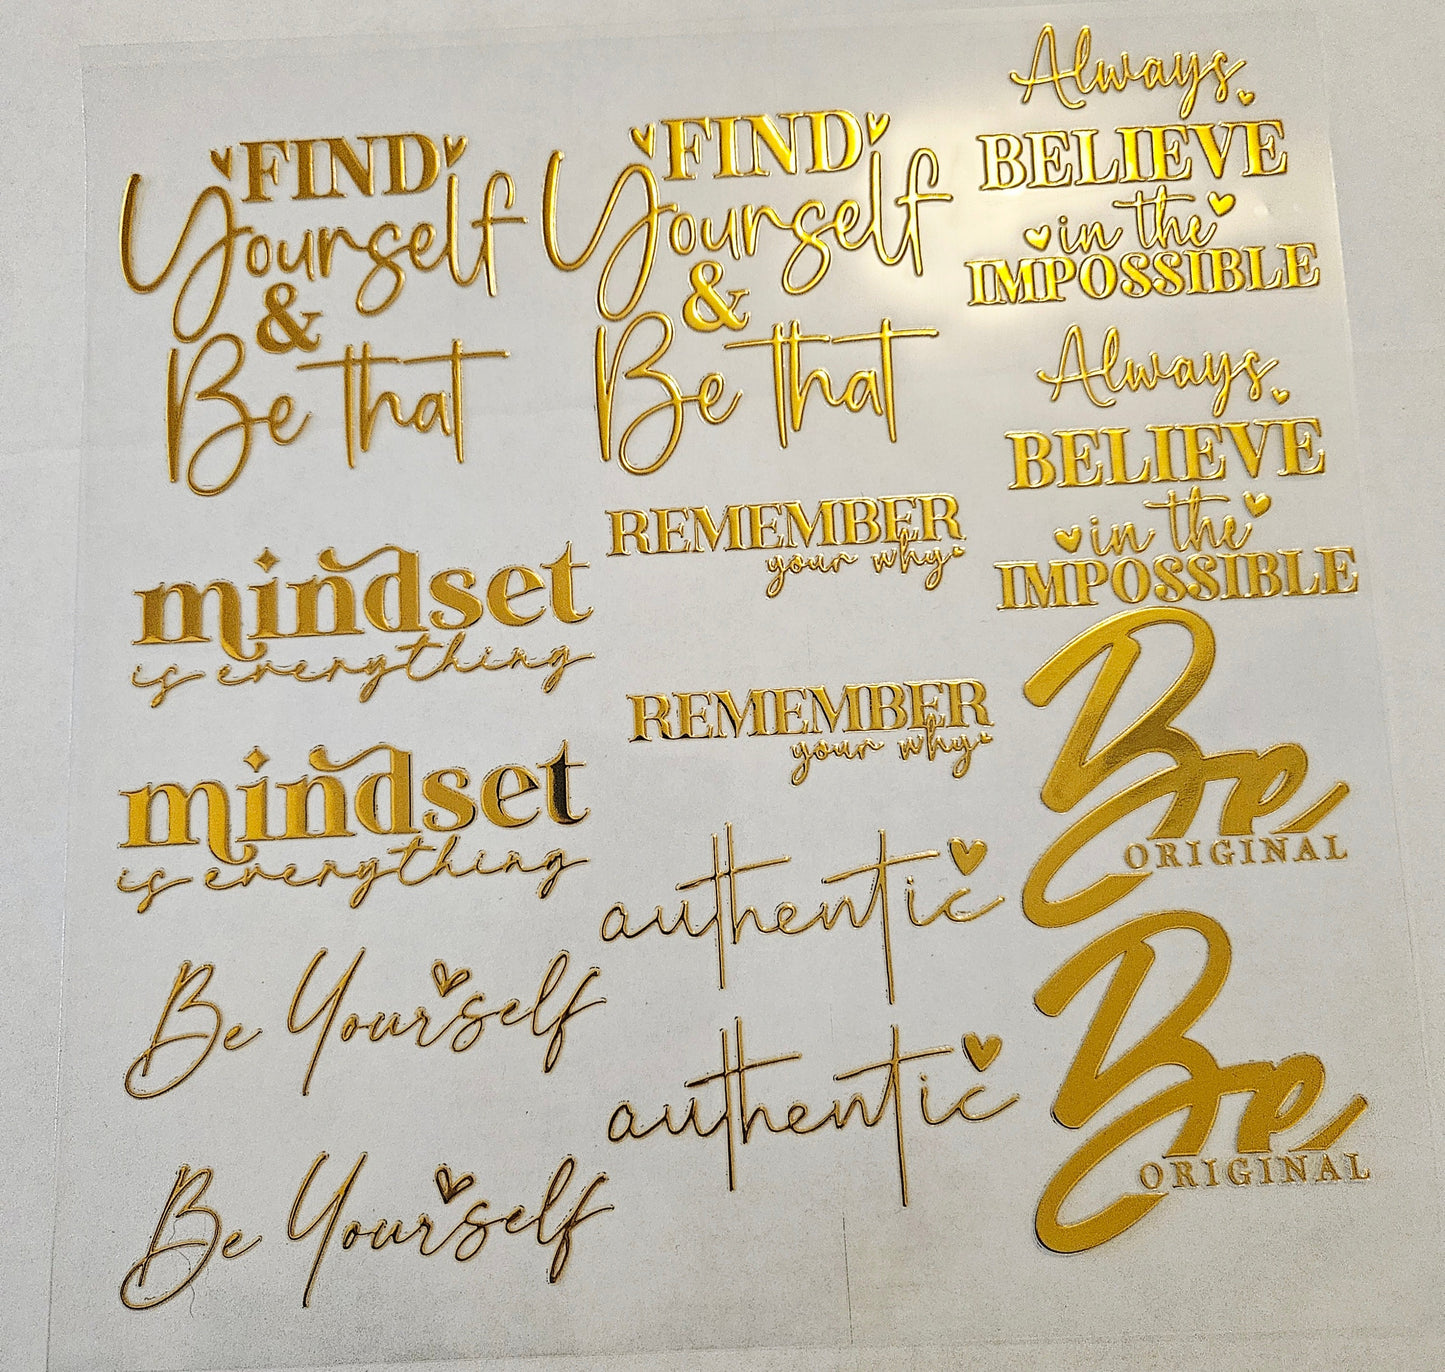 FIND
Yourself
&
Be that
FIND
Yourself
&
Be that
Always
BELIEVE
in the
IMPOSSIBLE
Always
BELIEVE
in the
IMPOSSIBLE
mindset
is everything
REMEMBER
your why
mindset
is everything
REMEMBER
your why
Be
ORIGINAL
authentic
Be Yourself
Be
ORIGINAL
authentic
Be Yourself